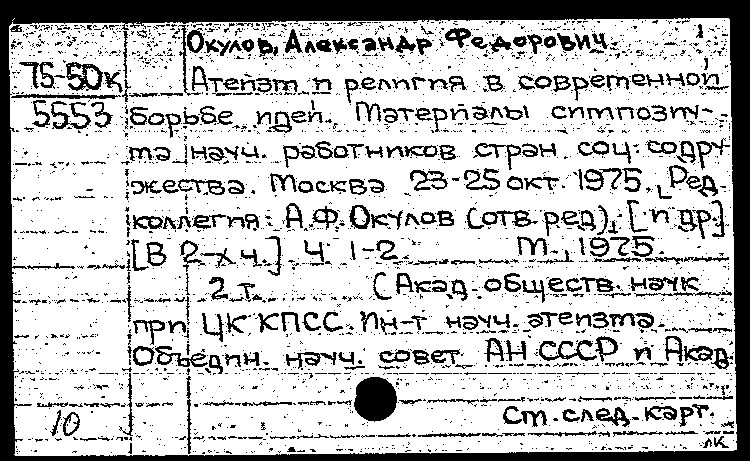 Окулов, Александр Федорович.
75-50к Атеизм и религия в современной
5553 борьбе идей. Материалы симпозиу-
ма науч. работников стран соц. содру-
жества. Москва 23-25 окт. 1975. Ред.
коллегия: А.Ф. Окулов (отв. ред), [и др.]
[В 2-х ч.] Ч 1-2 М., 1975.
2 т. (Акад. обществ. наук
при ЦК КПСС. Ин-т науч. атеизма.
Объедин. науч. совет АН СССР и Акад.
10 См. след. карт.
лк